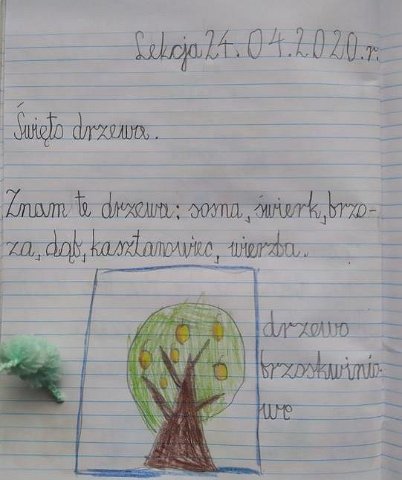 Lekcja 24.04.2020.r.
Święto drzewa.
Znam te drzewa: sosna, świerk, brzo-
za, dąb, kasztanowiec, wierzba.
drzewo
brzoskwinio
we